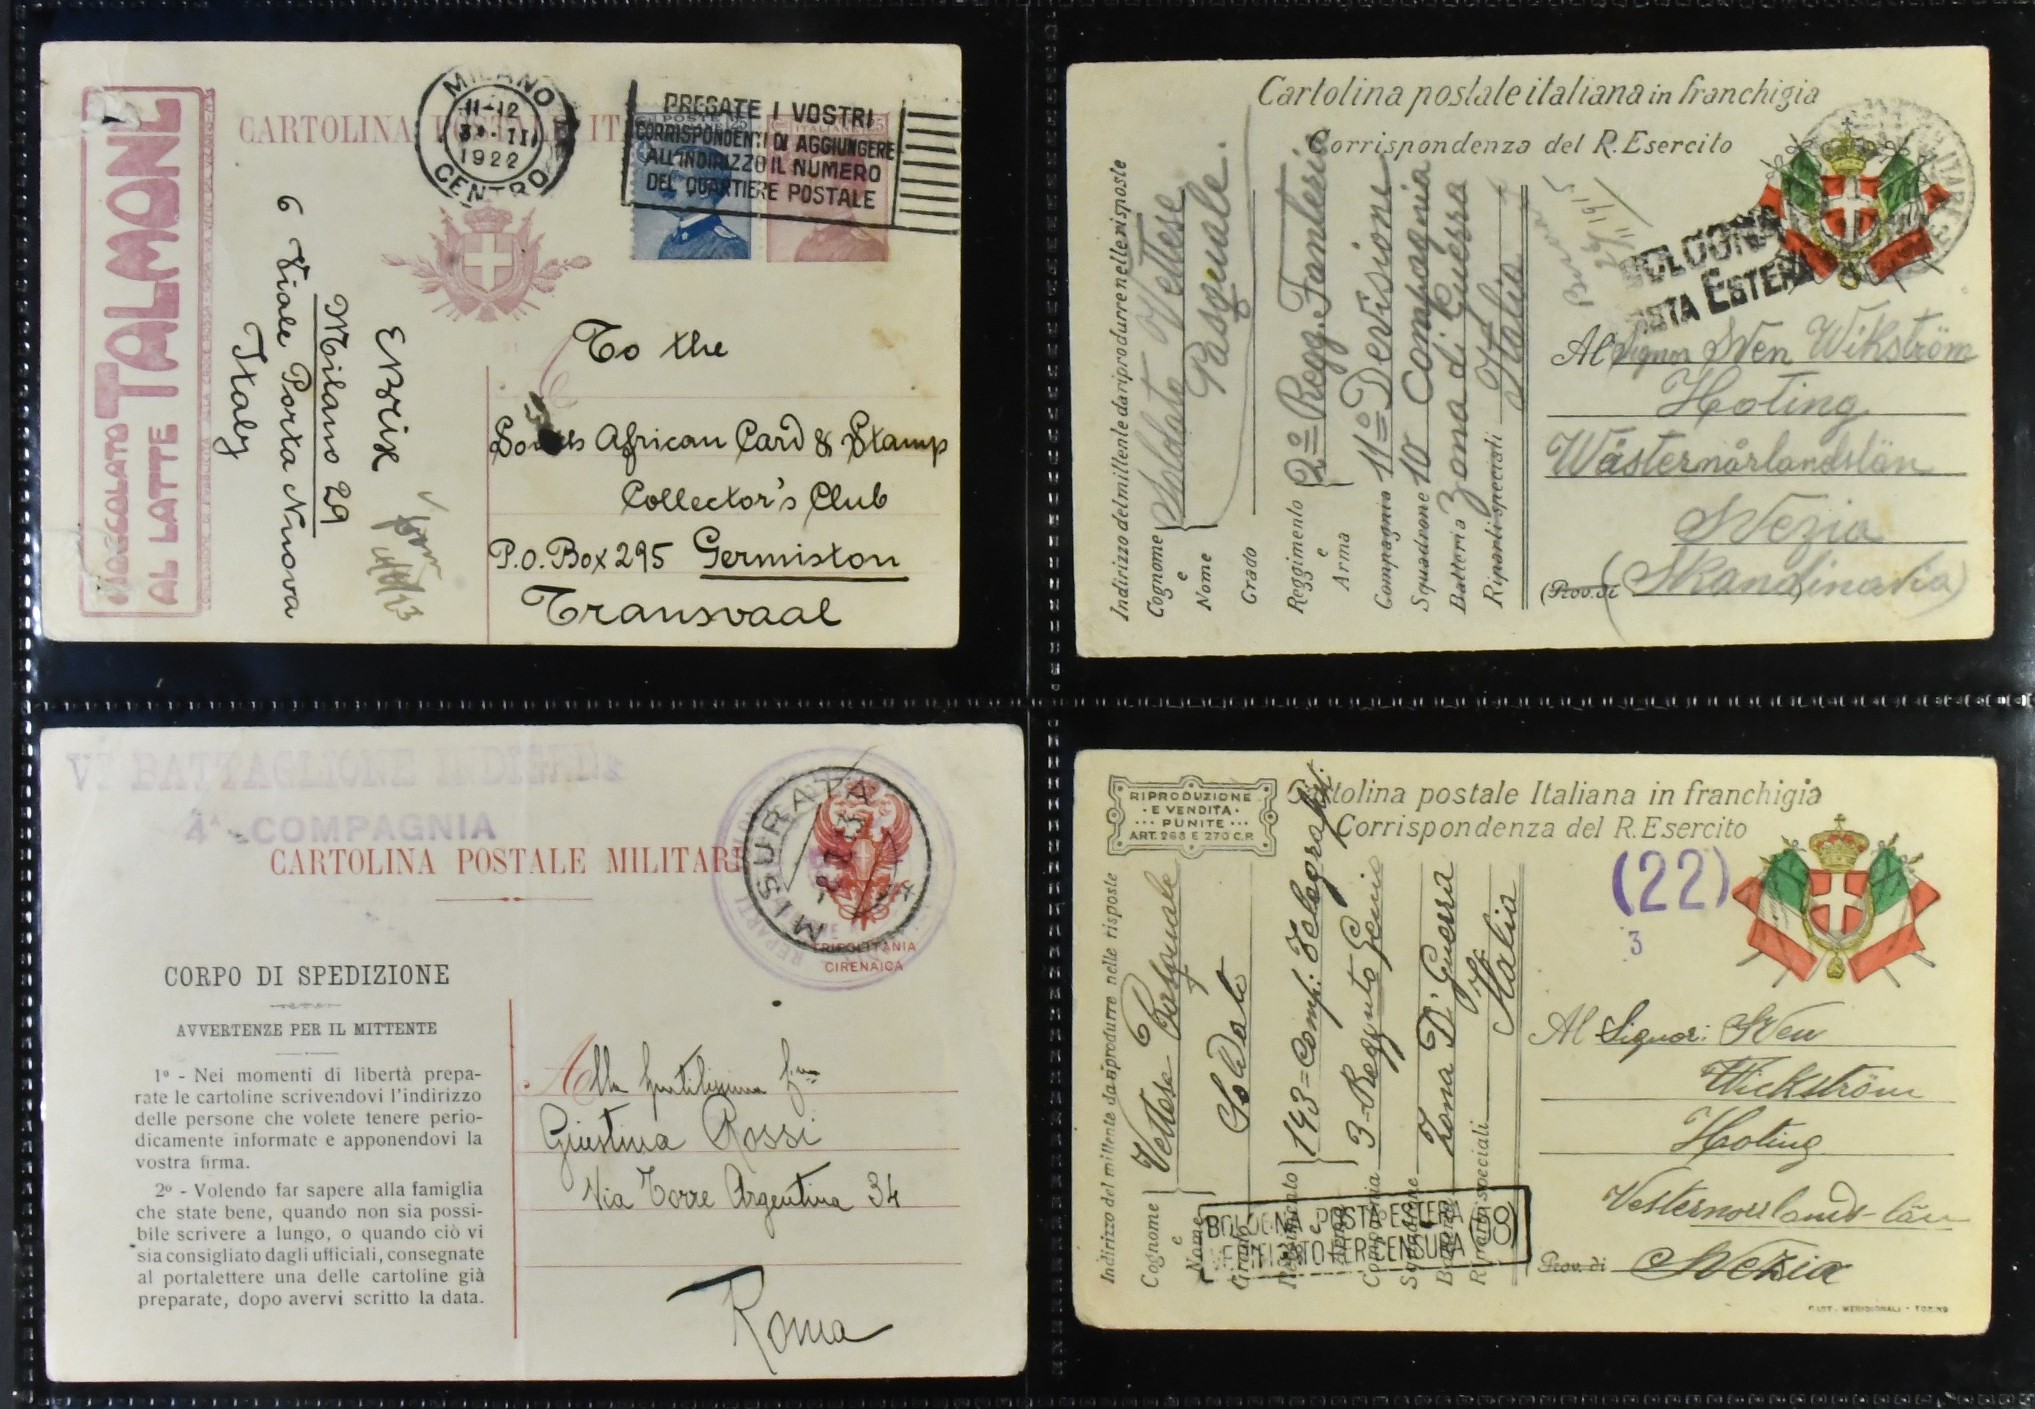 CARTOLINA POSTALE IT
MILANO
11-12
II
1922
CENTRO
POSTE
ITALIANE 25
PREGATE I VOSTRI
CORRISPONDENTI DI AGGIUNGERE
ALL'INDIRIZZO IL NUMERO
DEL QUARTIERE POSTALE
CIOCCOLATO TALMONE
AL LATTE
6 Viale Porta Nuova
Milano 29
Italy
To the
South African Card & Stamp
Collector's Club
P.O. Box 295 Germiston
Transvaal
Cartolina postale italiana in franchigia
Corrispondenza del R. Esercito
BOLOGNA
POSTA ESTERA
29/11/1915
Indirizzo del mittente da riprodurre nelle risposte
Cognome e Nome
Soldato Vettese
Pasquale.
Grado
Reggimento e Arma
2º = Regg. Fanteria
Compagnia 11º = Devisione
Squadrone 10 Compagnia
Batteria Zona di Guerra
Riparti speciali Italia
Al Signor Sven Wikström
Hoting
Wästernårlandslän
Svezia
(Prov. di (Skandinavia)
VI BATTAGLIONE INDIGENI
4ª COMPAGNIA
CARTOLINA POSTALE MILITARE
MISURATA
TRIPOLITANIA
CIRENAICA
CORPO DI SPEDIZIONE
AVVERTENZE PER IL MITTENTE
1º - Nei momenti di libertà prepa-
rate le cartoline scrivendovi l'indirizzo
delle persone che volete tenere perio-
dicamente informate e apponendovi la
vostra firma.
2º - Volendo far sapere alla famiglia
che state bene, quando non sia possi-
bile scrivere a lungo, o quando ciò vi
sia consigliato dagli ufficiali, consegnate
al portalettere una delle cartoline già
preparate, dopo avervi scritto la data.
Alla gentilissima
Giustina Rossi
Via Torre Argentina 34
Roma
RIPRODUZIONE
E VENDITA
PUNITE
ART. 268 E 270 C.P.
Cartolina postale Italiana in franchigia
Corrispondenza del R. Esercito
(22)
3
Indirizzo del mittente da riprodurre nelle risposte
Cognome e Nome
Vettese Pasquale
Grado Soldato
Reggimento e Arma
193 = Comp. Telegrafisti
Compagnia 3 - Reggnto Genio
Squadrone
Batteria Zona Di Guerra
Riparti speciali Italia
Al Signor: Sven
Wickström
Hoting
Vesternourlands-län
Prov. di Svezia
BOLOGNA POSTA ESTERA (68)
VERIFICATO PER CENSURA
CART. MERIDIONALI - TORINO